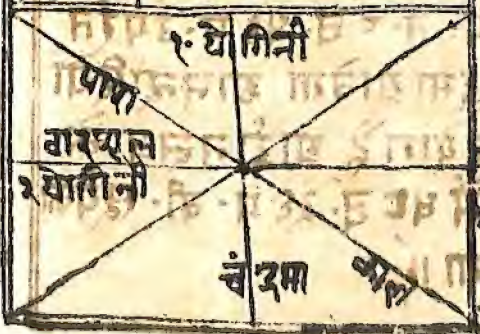 १· योगिनी
पाश
वारशूल
२ योगिनी
चंद्रमा
काल